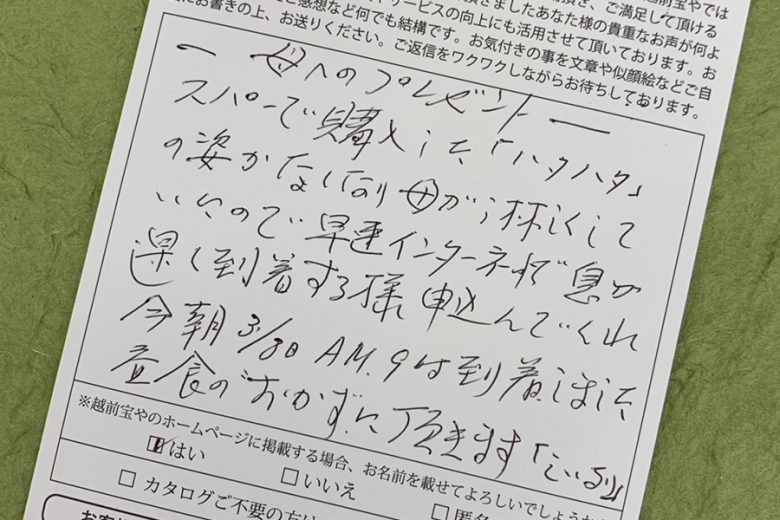 越前宝やでは
頂きましたあなた様の貴重なお声が何よ
サービスの向上にも活用させて頂いております。お
ご感想など何でも結構です。お気付きの事を文章や似顔絵などご自
にお書きの上、お送りください。ご返信をワクワクしながらお待ちしております。
ー 母へのプレゼント ー
スパーで購入した「ハタハタ」
の姿がなくなり母が淋しくして
いたので早速インターネットで息が
早く到着する様申込んでくれ
今朝3/8日 AM.9時到着しました
昼食のおかずに頂きます
※越前宝やのホームページに掲載する場合、お名前を載せてよろしいでしょうか
はい
いいえ
匿名
カタログご不要の方は
お客